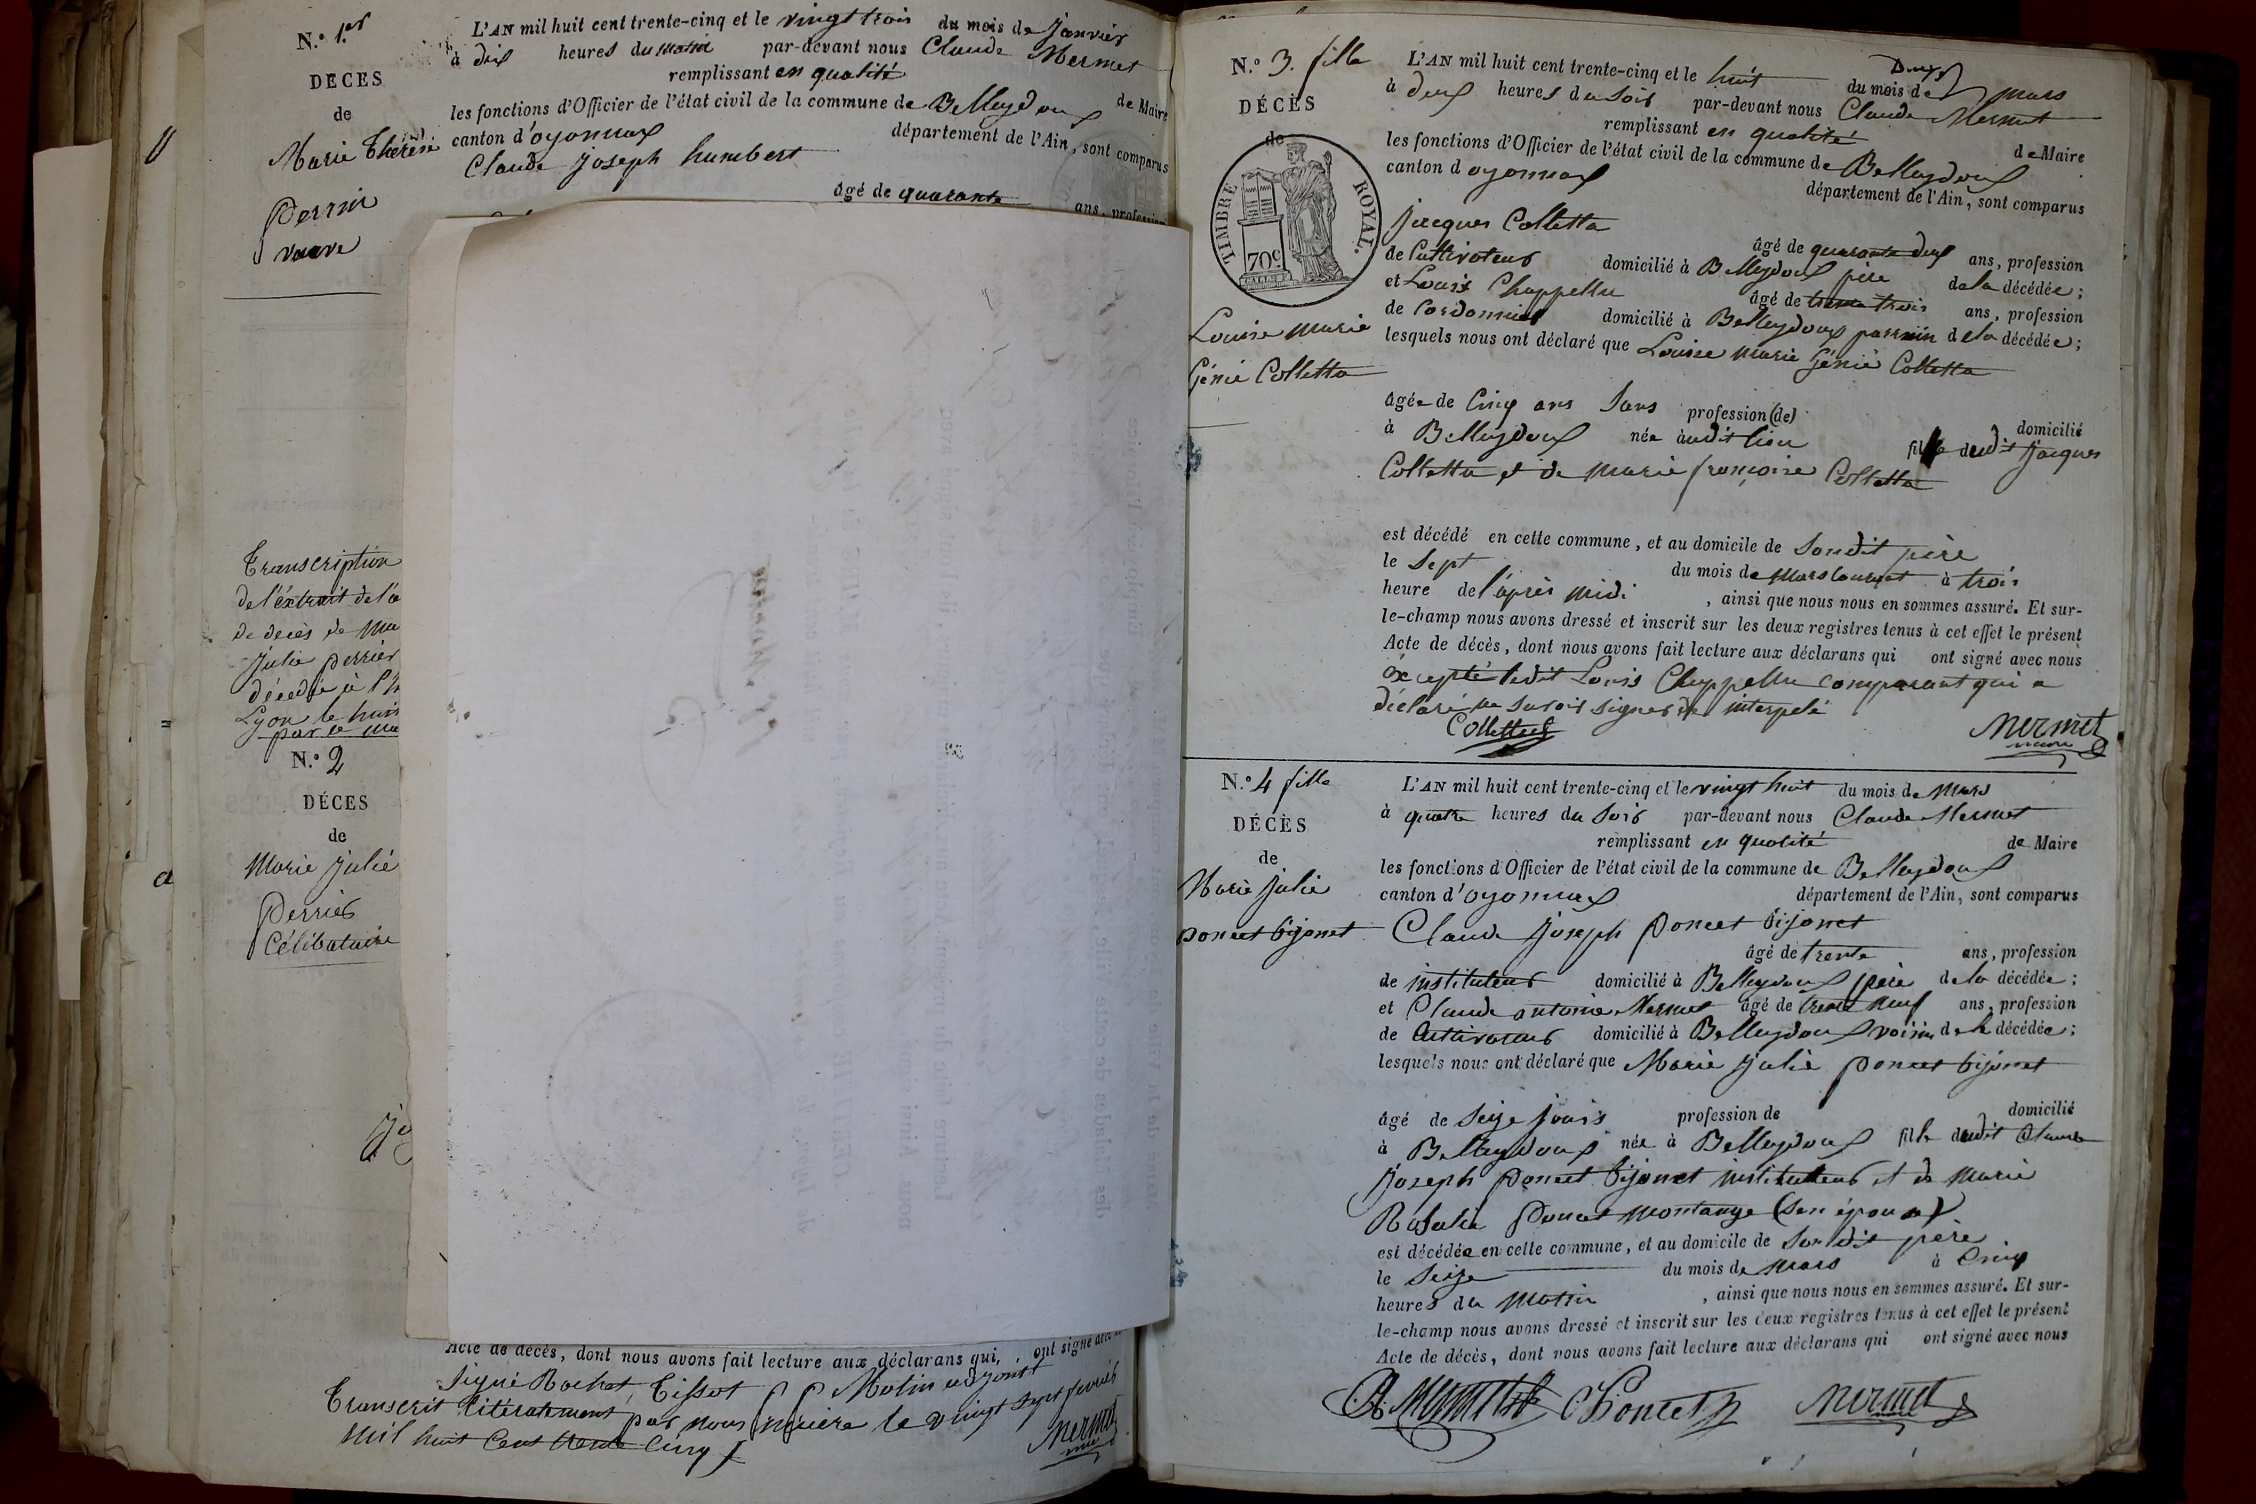 N.o 1.er
DECES
de
Marie Thérèse
Perrin
veuve
L'AN mil huit cent trente-cinq et le vingt trois du mois de Janvier
à dix heures du matin par-devant nous Claude Mermet
remplissant en qualité de Maire
les fonctions d'Officier de l'état civil de la commune de Belleydoux
canton d'oyonnax département de l'Ain, sont comparus
Claude Joseph humbert
âgé de quarante ans, profession
Transcription
de l'éxtrait de l'a
de décès de Ma
Julie perrier
décedée à l'h
Lyon le huit
par le ma
N.o 2
DÉCES
de
Marie Julie
Perrier
Célibataire
Acte de décès, dont nous avons fait lecture aux déclarans qui, ont signé avec
Signé Rochet, Tissot Molin adjoint
Transcrit litéralement par nous maire le vingt sept fevrier
mil huit cent trente cinq
Mermet
maire
N.o 3. fille
DÉCÈS
de
TIMBRE ROYAL.
70c
Louise Marie
Génie Colletta
L'AN mil huit cent trente-cinq et le huit du mois de mars
à deux heures du soir par-devant nous Claude Mermet
remplissant en qualité de Maire
les fonctions d'Officier de l'état civil de la commune de Belleydoux
canton d oyonnax département de l'Ain, sont comparus
Jacques Colletta
âgé de quarante deux ans, profession
de Cultivateur domicilié à Belleydoux père de la décédée;
et Louis Chappellu âgé de trente trois ans, profession
de Cordonnier domicilié à Belleydoux parrain de la décédée;
lesquels nous ont déclaré que Louise marie Génie Colletta
âgée de Cinq ans Sans profession (de) domicilié
à Belleydoux née audit lieu fille dudit Jacques
Colletta et de Marie françoise Colletta
est décédé en cette commune, et au domicile de Sondit père
le Sept du mois de Mars Courant à trois
heure de l'après midi, ainsi que nous nous en sommes assuré. Et sur-
le-champ nous avons dressé et inscrit sur les deux registres tenus à cet effet le présent
Acte de décès, dont nous avons fait lecture aux déclarans qui ont signé avec nous
éxcepté ledit Louis Chappellu comparant qui a
déclaré ne savoir signer de interpelé
Mermet
maire
N.o 4 fille
DÉCÈS
de
Marie Julie
poncet bijonet
L'AN mil huit cent trente-cinq et le vingt huit du mois de Mars
à quatre heures du Soir par-devant nous Claude Mermet
remplissant en qualité de Maire
les fonctions d'Officier de l'état civil de la commune de Belleydoux
canton d'oyonnax département de l'Ain, sont comparus
Claude Joseph poncet bijonet
âgé de trente ans, profession
de instituteur domicilié à Belleydoux père de la décédée;
et Claude antoine Mermet âgé de trente neuf ans, profession
de Cultivateur domicilié à Belleydoux voisin de la décédée;
lesquels nous ont déclaré que Marie Julie poncet bijonet
âgé de Seize jours profession de domicilié
à Belleydoux née à Belleydoux fille dudit Claude
Joseph poncet bijonet instituteur et de Marie
Rosalie Poncet Montange (son épouse)
est décédée en cette commune, et au domicile de Sondit père
le Seize du mois de Mars à Cinq
heures du Matin, ainsi que nous nous en sommes assuré. Et sur-
le-champ nous avons dressé et inscrit sur les deux registres tenus à cet effet le présent
Acte de décès, dont nous avons fait lecture aux déclarans qui ont signé avec nous
Poncet Mermet
maire